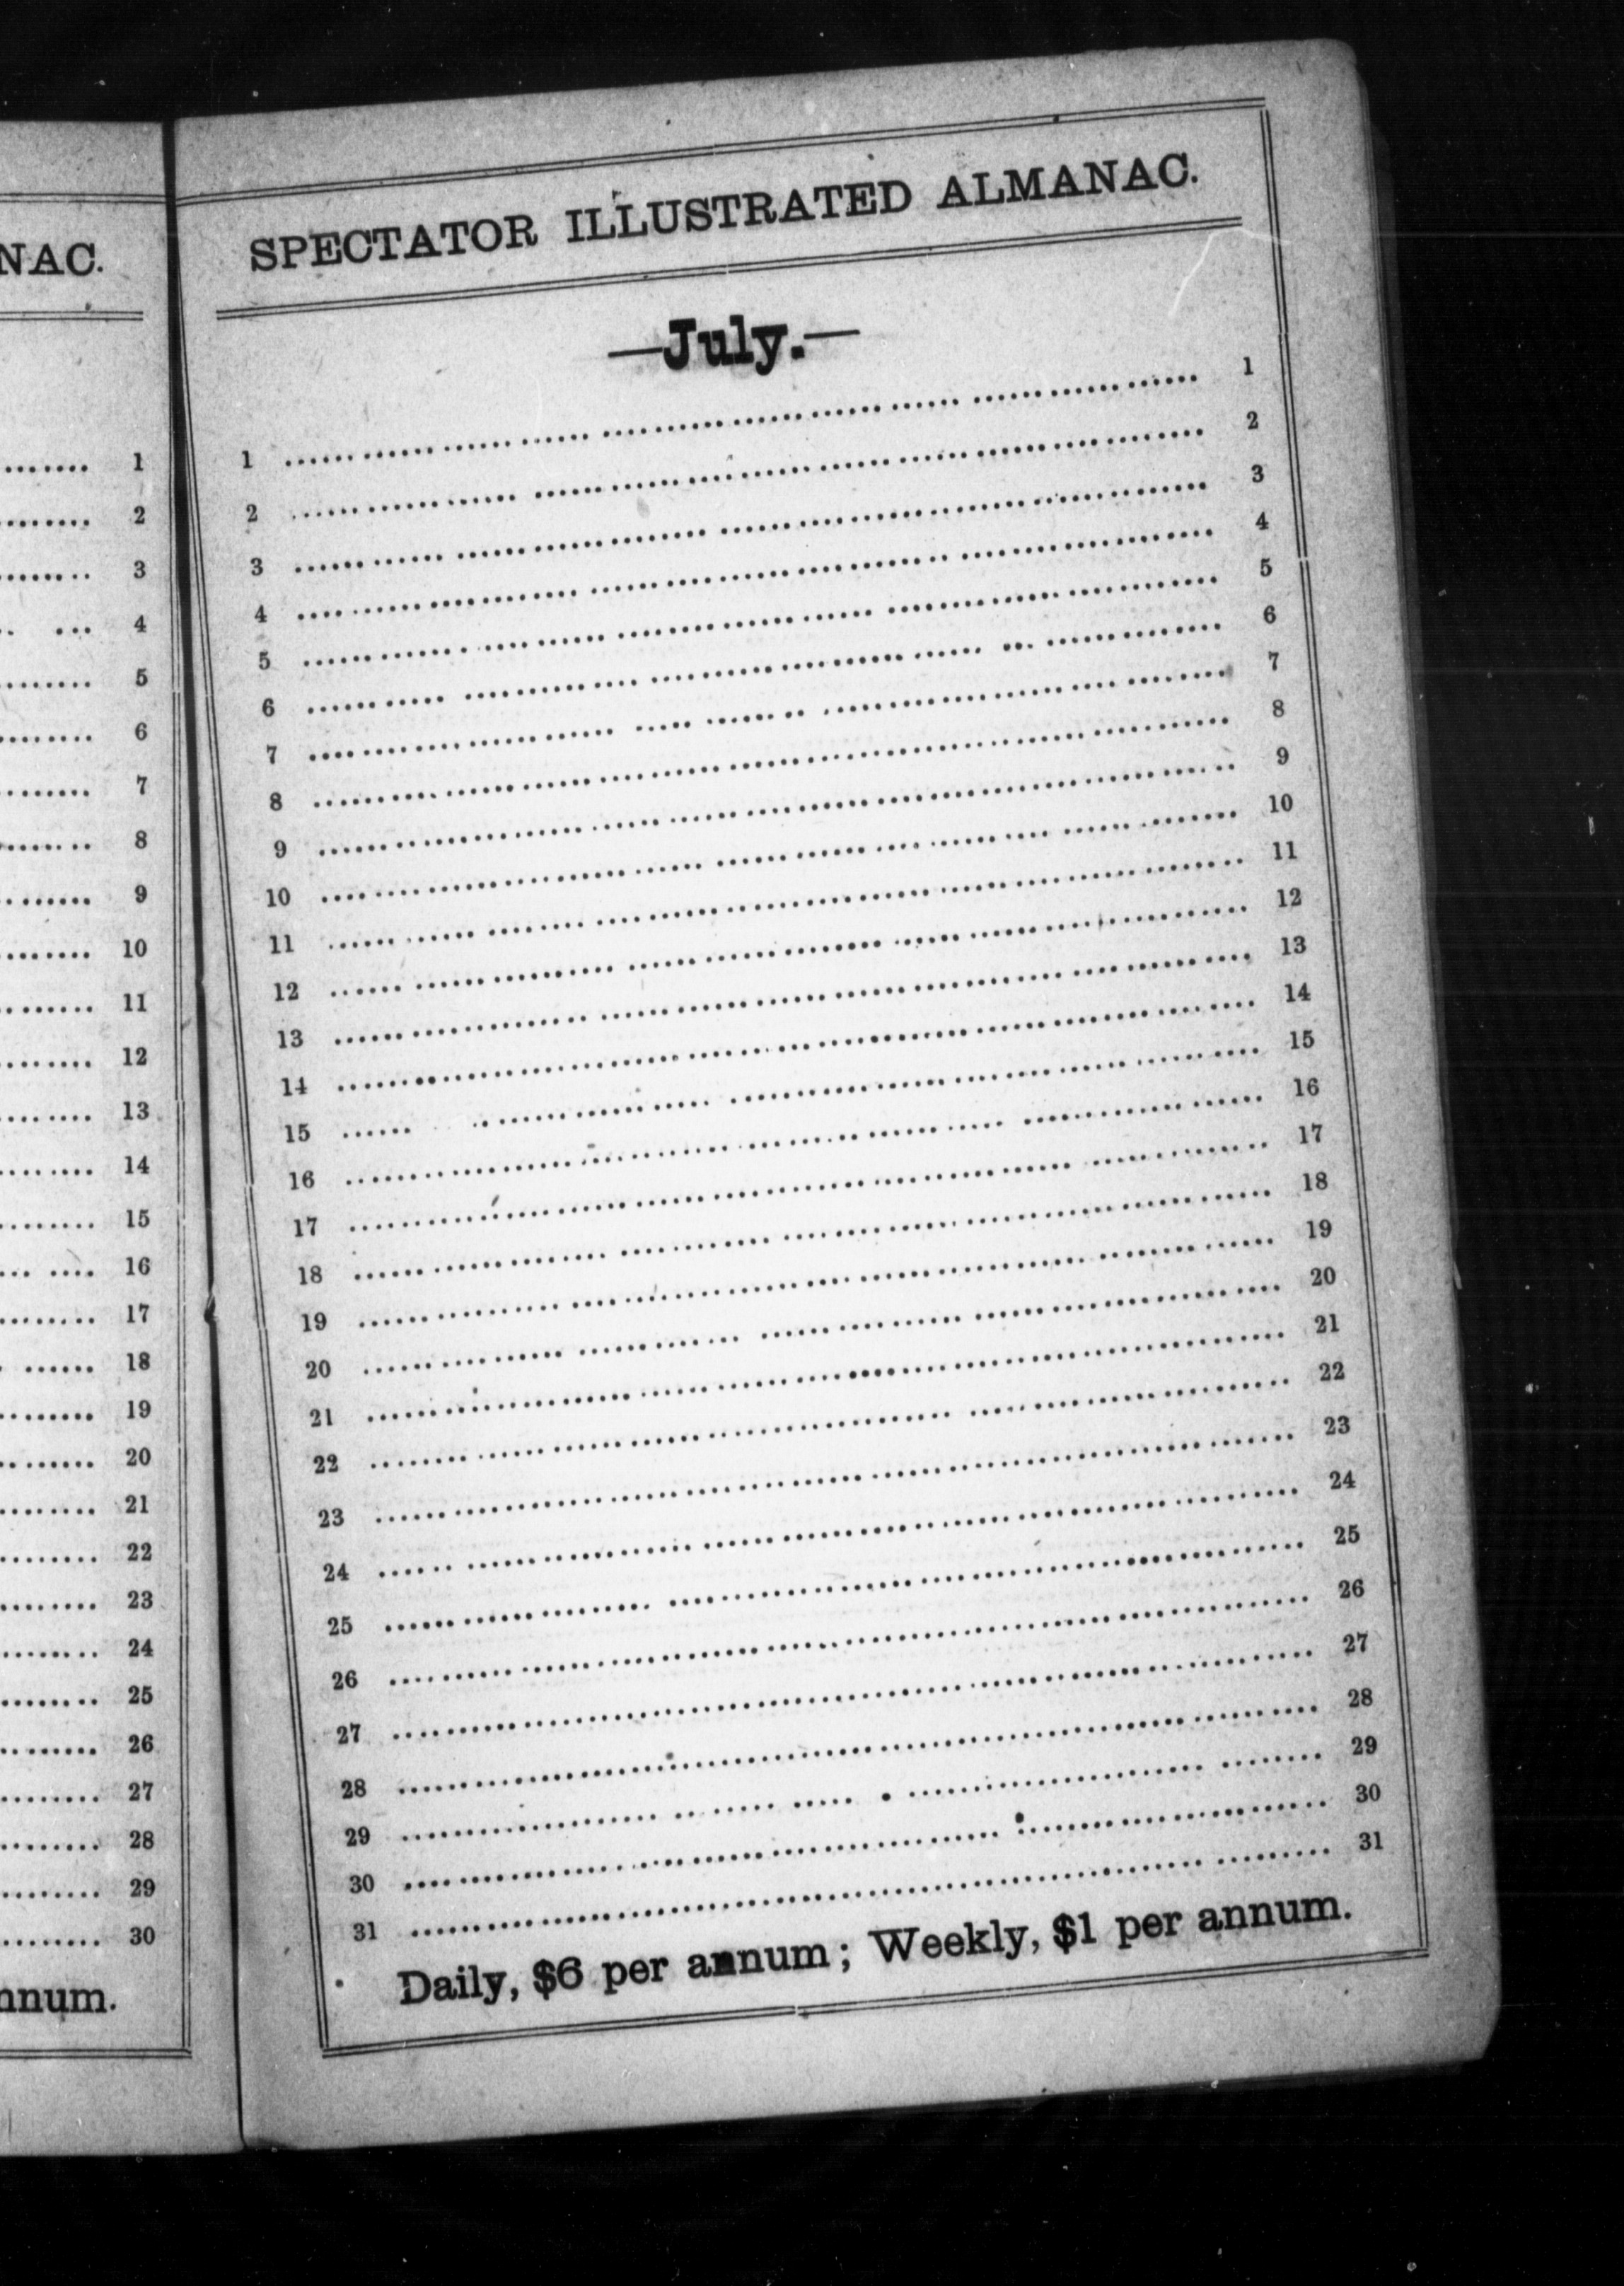 NAC.
1
2
3
4
5
6
7
8
9
10
11
12
13
14
15
16
17
18
19
20
21
22
23
24
25
26
27
28
29
30
nnum.
SPECTATOR ILLUSTRATED ALMANAC.
—July.—
1 ........ 1
2 ........ 2
3 ........ 3
4 ........ 4
5 ........ 5
6 ........ 6
7 ........ 7
8 ........ 8
9 ........ 9
10 ........ 10
11 ........ 11
12 ........ 12
13 ........ 13
14 ........ 14
15 ........ 15
16 ........ 16
17 ........ 17
18 ........ 18
19 ........ 19
20 ........ 20
21 ........ 21
22 ........ 22
23 ........ 23
24 ........ 24
25 ........ 25
26 ........ 26
27 ........ 27
28 ........ 28
29 ........ 29
30 ........ 30
31 ........ 31
Daily, $6 per annum; Weekly, $1 per annum.